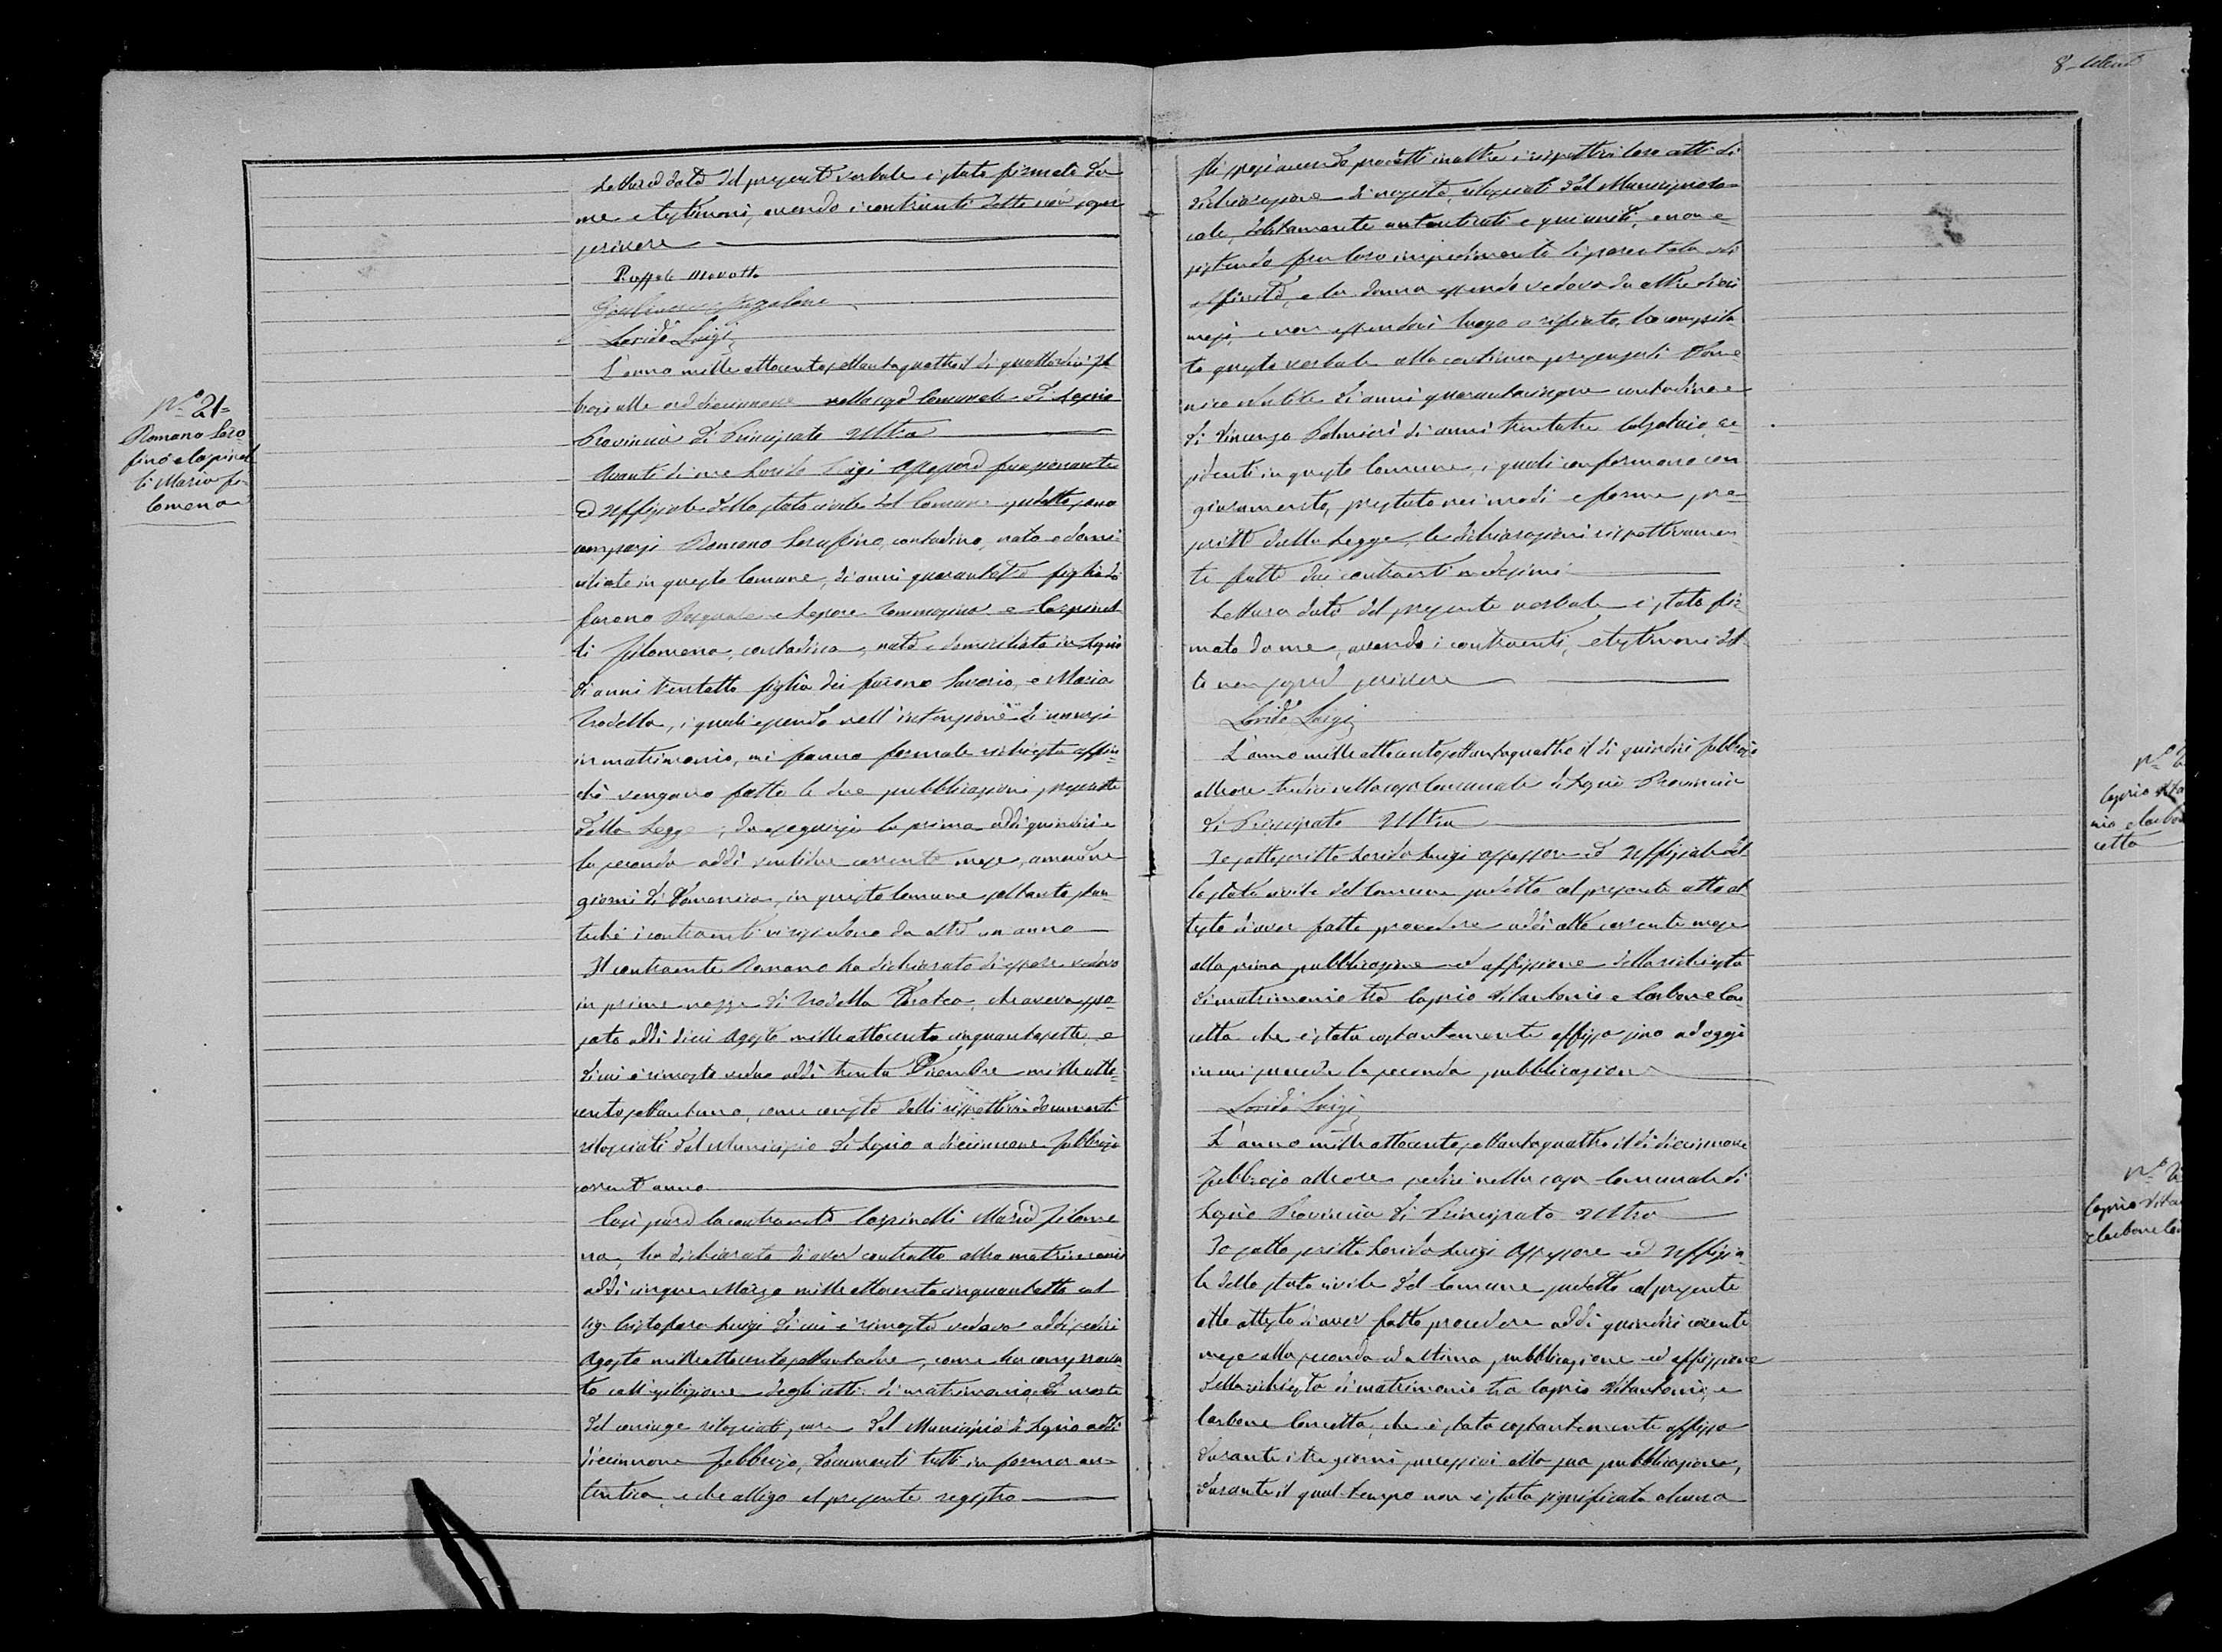 8
Lettura data del presente verbale è stato firmato da
me e testimoni, avendo i contraenti detto non saper
scrivere
Raffaele
Lorido Luigi
L'anno mille ottocento settantaquattro il dì quattordici feb
braio alle ore diecinnove nella casa Comunale di Lapio
Provincia di Principato Ultra
N.º 21=
Romano Sera
fino e Carpinel
li Maria fi
lomena
Avanti di me Lorido Luigi Assessore funzionante
ed uffiziale dello stato civile del Comune sudetto sono
comparsi Romano Serafino, contadino, nato e domi
ciliato in questo Comune, di anni quarantotto figlio di
furono Pasquale e Lepore Tommasina e Carpinel
li Filomena, contadina, nata e domiciliata in Lapio
di anni trentotto figlia dei furono Saverio, e Maria
Trodella, i quali essendo nell'intenzione di unirsi
in matrimonio, mi fanno formale richiesta affin
chè vengano fatte le due pubblicazioni prescritte
dalla Legge, da eseguirsi la prima addì quindici e
la seconda addì ventidue corrente mese, amendue
giorni di Domenica, in questo Comune soltanto stan
techè i contraenti vi risiedono da oltre un anno
Il contraente Romano ha dichiarato di essere vedovo
in prime nozze di Trodella Dorotea, che aveva spo
sata addì dieci Agosto mille ottocento cinquantasette, e
di cui è rimasto vedovo addì trenta Dicembre mille otto
cento settantuno, come consta dalli rispettivi documenti
rilasciati dal Municipio di Lapio a diecinnove febbraio
corrente anno
Così pure la contraente Carpinelli Maria Filome
na, ha dichiarato di aver contratto altro matrimonio
addì cinque Marzo mille ottocento cinquantotto col
sig. Cristofaro Luigi di cui è rimasta vedova addì sedici
Agosto mille ottocento settantadue, come ha comprova
to coll'esibizione degli atti di matrimonio, e di morte
del coniuge rilasciati, dal Municipio di Lapio addì
diecinnove febbraio, documenti tutti in forma au
tentica, e che alligo al presente registro
Gli sposi avendo prodotti inoltre i rispettivi loro atti di
rilasciati dal Municipio lo
cale, debitamente autenticati e quì uniti, e non e
sistendo fra loro impedimento di parentela o di
affinità, e la donna essendo vedova da oltre dieci
mesi, e non essendovi luogo a rifiuto, ho compila
to questo verbale alla continua presenza di Dome
nico di anni quarantacinque contadino e
di Vincenzo Palmieri di anni trentatre calzolaio, re
sidenti in questo Comune, i quali confermano con
giuramento, prestato nei modi e forme pre
scritti dalla Legge, le dichiarazioni rispettivamen
te fatte dai contraenti medesimi
Lettura data del presente verbale è stato fir
mato da me, avendo i contraenti, e testimoni det
to non saper scrivere
Lorido Luigi
L'anno mille ottocento settantaquattro il dì quindici febbraio
alle ore tredici nella casa Comunale di Lapio Provincia
di Principato Ultra
Io sottoscritto Lorido Luigi assessore ed uffiziale del
lo stato civile del Comune sudetto col presente atto at
testo di aver fatto procedere addì otto corrente mese
alla prima pubblicazione ed affissione della richiesta
di matrimonio tra Caprio Vitantonio e Carbone Con
cetta che è stata costantemente affissa sino ad oggi
in cui procede la seconda pubblicazione
Lorido Luigi
Caprio Vita
nio e Carbon
cetta
L'anno mille ottocento settantaquattro il dì diecinnove
febbraio alle ore sedici nella casa Comunale di
Lapio Provincia di Principato Ultra
Io sottoscritto Lorido Luigi Assessore ed uffizia
le dello stato civile del Comune sudetto col presente
atto attesto di aver fatto procedere addì quindici corrente
mese alla seconda ed ultima pubblicazione ed affissione
della richiesta di matrimonio tra Caprio Vitantonio, e
Carbone Concetta, che è stata costantemente affissa
durante i tre giorni successivi alla sua pubblicazione,
durante il qual tempo non è stata significata alcuna
Caprio Vitan
e Carbone Con